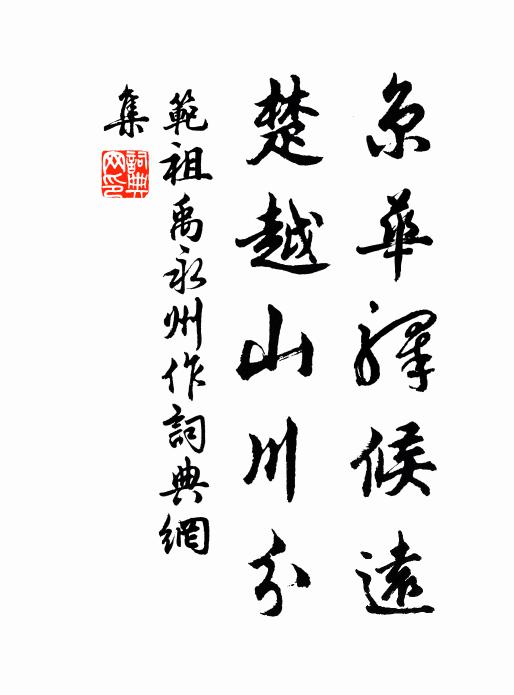 京華驛候遠
楚越山川分
範祖禹永州作詞典網
集
詞典网印